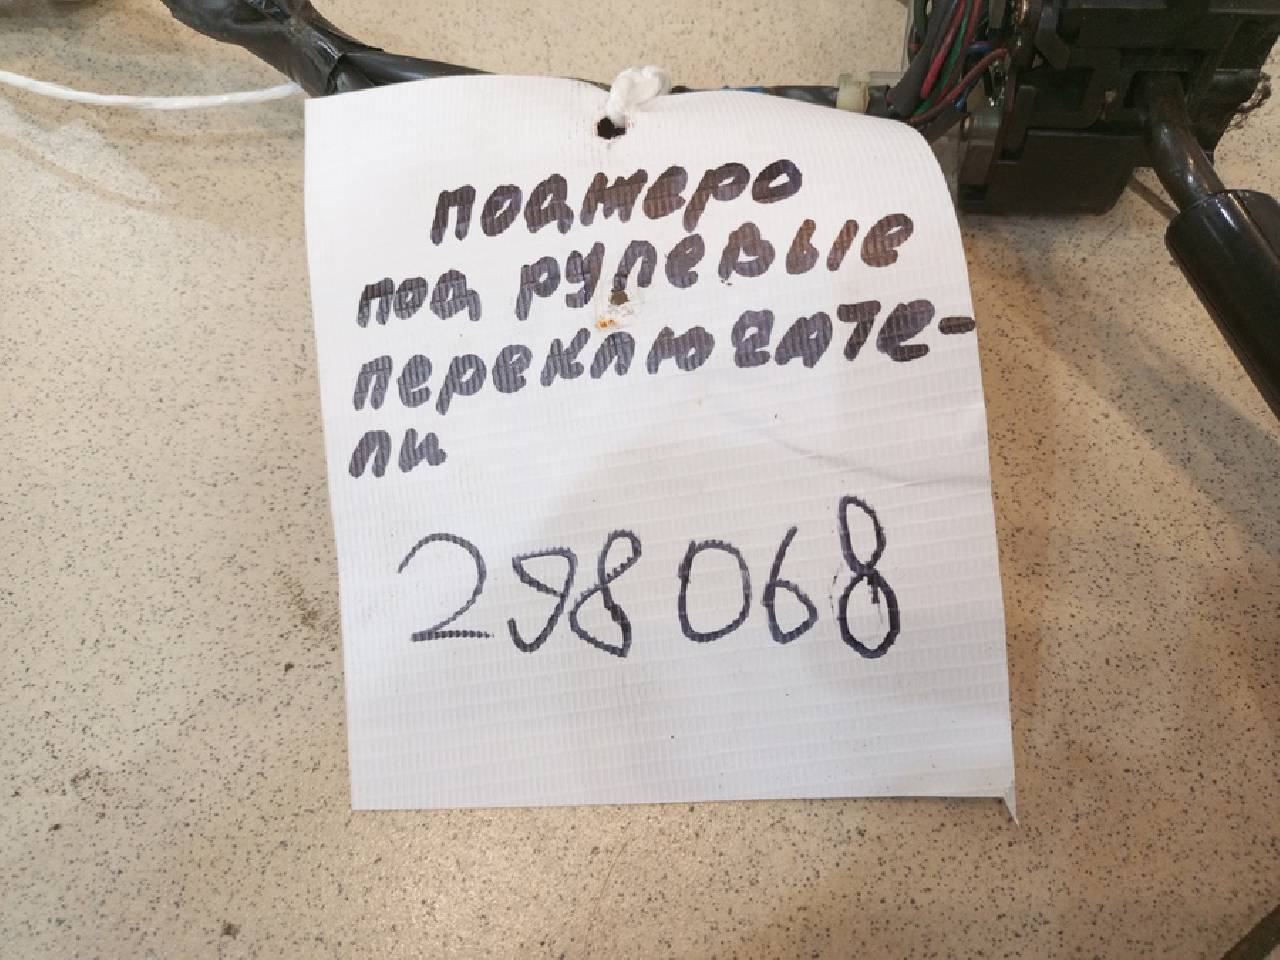 поджеро
под рулевые
переключате-
ли
298068